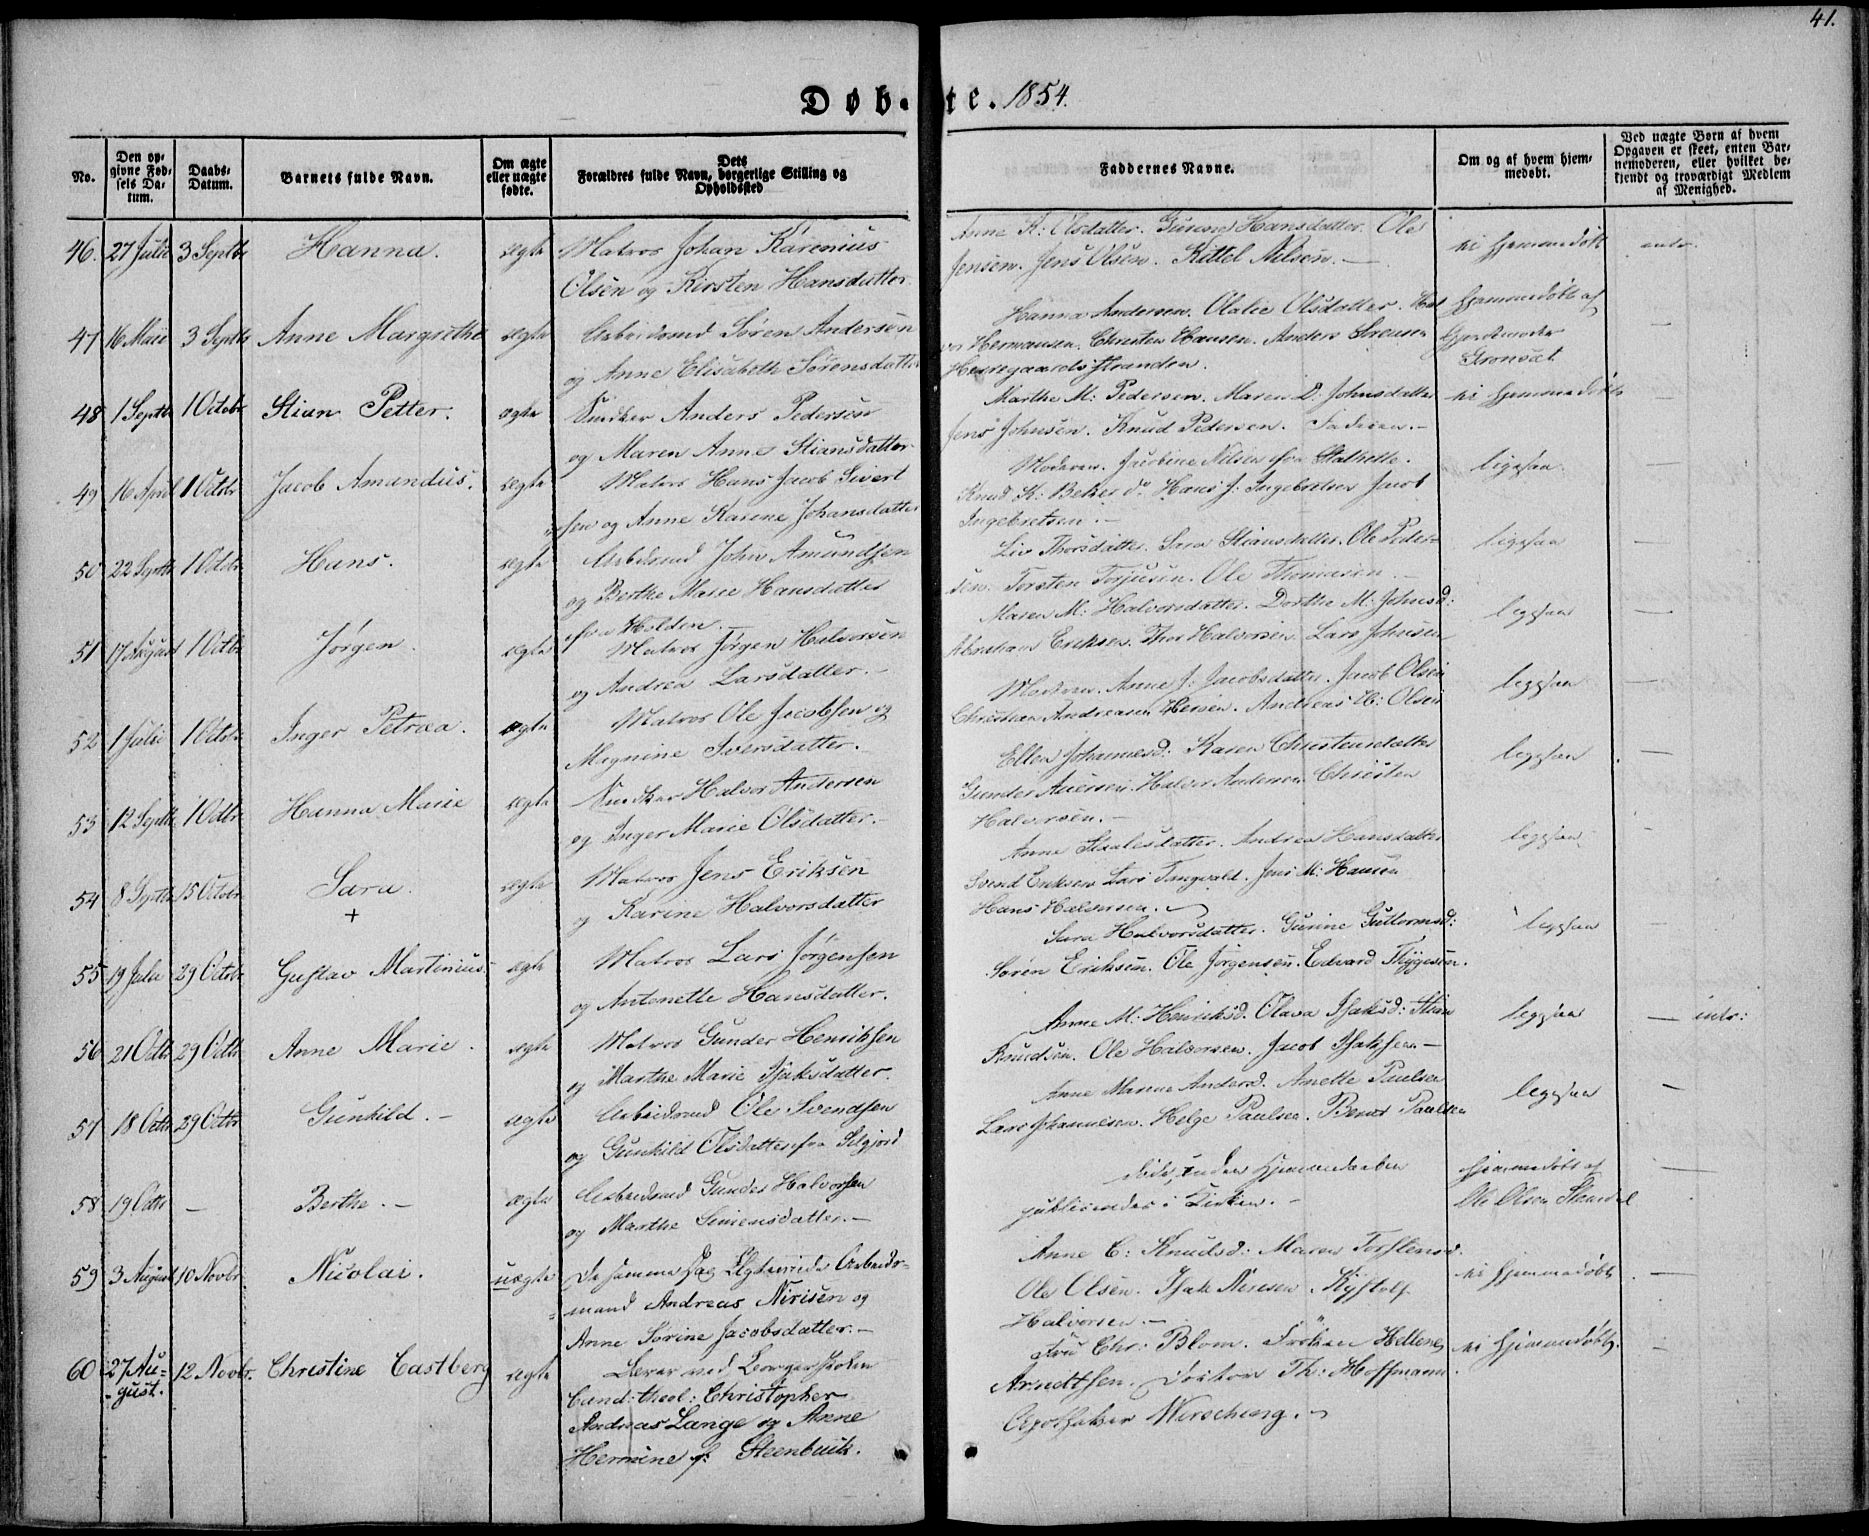 41.
Døb- te. 1854.
No.
Den op-
givne Fød-
sels Da-
tum.
Daabs-
Datum.
Barnets fulde Navn.
Om ægte
eller uægte
fødte.
Dets
Forældres fulde Navn, borgerlige Stilling og
Opholdssted
Faddernes Navne.
Om og af hvem hjem-
medøbt.
Ved uægte Børn af hvem
Opgaven er skeet, enten Bar-
nemoderen, eller hvilket be-
kjendt og troværdigt Medlem
af Menighed.
46. 27 Julii 3 Septbr Hanna. ægte Matros Johan Karenius
Olsen og Kirsten Hansdatter
Anne K: Olsdatter. Gunne Hansdatter. Ole
Jensen. Jens Olsen. Kittel Nilsen. —
ei hjemmedøbt
intr.
47 16 Maii 3 Septbr Anne Margrethe ægte Arbeidsmd Søren Andersen
og Anne Elisabeth Sørensdatter
Hanna Andersen. Olalie Olsdatter. Hal
vor Hermansen. Christen Hansen. Anders Sørensen
Herregaardsstranden.
hjemmedøbt af
Gjordemoder
Gronsæt
—
48 1 Septbr 1 Octobr Stian Petter. ægte Snedker Anders Pedersen
og Maren Anne Stiansdatter
Marthe M: Pedersen. Maren D: Johnsdatter
Jens Johnsen. Knud Pedersen. Faderen. —
ei hjemmedøbt
—
49 16 April 1 Octobr Jacob Amandus. ægte Matros Hans Jacob Sivert
sen og Anne Karine Johansdatter
Moderen. Jacobine Nilsen fra Stathelle.
Knud K: Beker do. Hans J: Ingebretsen Jacob
Ingebretsen. —
ligesaa
—
50 22 Septbr 1 Octobr Hans. ægte Arbeidsmd John Amundsen
og Berthe Marie Hansdatter
fra Holden. —
Liv Thorsdatter. Sara Stiansdatter. Ole Peder-
sen. Torsten Torjusen. Ole Thomesen. —
ligesaa
—
51 17 August 1 Octbr Jørgen. ægte Matros Jørgen Halvorsen
og Andrea Larsdatter. —
Maren M: Halvorsdatter. Dorthe M: Johnsd:
Abraham Eriksen. Thor Halvorsen. Lars Johnsen
ligesaa
—
52 1 Julii 1 Octobr Inger Petræa. ægte Matros Ole Jacobsen og
Megnine Iversdatter.
Moderen. Anne J: Jacobsdatter. Jacob Olsen
Christian Andreasen Heien. Andreas H: Olsen
ligesaa
—
53 12 Septbr 1 Octbr Hanna Marie ægte Snedker Halvor Andersen
og Inger Marie Olsdatter. —
Ellen Johannesd: Karen Christensdatter
Gunder Auensen. Halvor Andersen Christen
Halvorsen. —
ligesaa
—
54 8 Septbr 15 Octobr Sara. + ægte Matros Jens Eriksen
og Karine Halvorsdatter
Anne Staalesdatter. Andrea Hansdatter
Svend Eriksen Lars Tangvald. Jens M: Hansen
Hans Halvorsen. —
ligesaa
—
55 19 Julii 29 Octobr Gustav Martinius. ægte Matros Lars Jørgensen
og Antonette Hansdatter.
Sara Halvorsdatter. Gunine Guttormsd:
Søren Eriksen. Ole Jørgensen. Edvard Thygesen.
ligesaa
—
56 21 Octbr 29 Octbr Anne Marie. ægte Matros Gunder Henriksen
og Marthe Marie Isaksdatter.
Anne M: Henriksd. Olava Isaksd: Stian
Knudsen. Ole Halvorsen. Jacob Isaksen —
ligesaa
— intr:
57 18 Octbr 29 Octbr Gunhild. — ægte Arbeidsmd Ole Svendsen
og Gunhild Olsdatter fra Silgjord
Anne Marie Andersd. Anette Paulsen
Lars Johannesen. Helge Paulsen. Bernt Paulsen
ligesaa
—
58 19 Octbr — Berthe. — ægte Arbeidsmd Gunder Halvorsen
og Marthe Simensdatter. —
døde, inden Hjemmedaaben
publicendes i Kirken. —
hjemmedøbt af
Ole Olsen
—
59 3 August 10 Novbr. Nicolai. uægte De samme sig Ægteviede Arbeids-
mand Andreas Nirisen og
Anne Sørine Jacobsdatter. —
Anne C: Knudsd: Maren Torstensd.
Ole Olsen. Isak Nirisen. Kystolf
Halvorsen. —
ei hjemmedøbt
—
60 27 Au-
gust. 12 Novbr. Christine Castberg ægte Lærer ved Borgerskolen
Cand: theol: Christopher
Andreas Lange og Anne
Hermine f: Steenbuik.
Fru Chr: Blom. Frøken Hellene
Arnettsen. Doctor Th: Hoffmann.
Apotheker Wirsching. —
ei hjemmedøbt.
—